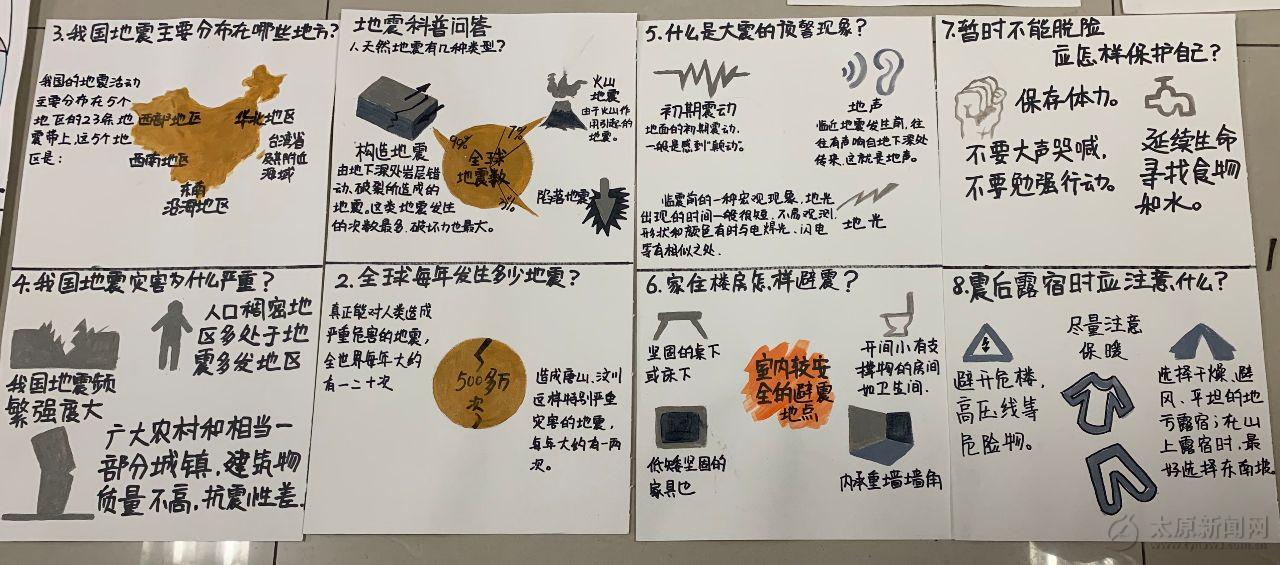 地震科普问答
1.天然地震有几种类型?
构造地震
由地下深处岩层错
动、破裂所造成的
地震。这类地震发生
的次数最多,破坏力也最大。
90%
7%
3%
全球
地震数
火山
地震
由于火山作
用引起的
地震。
陷落地震
2.全球每年发生多少地震?
真正能对人类造成
严重危害的地震,
全世界每年大约
有一二十次
500多万
次
造成唐山、汶川
这样特别严重
灾害的地震,
每年大约有一两
次。
3.我国地震主要分布在哪些地方?
我国的地震活动
主要分布在5个
地区的23条地
震带上,这5个地
区是:
西部地区
华北地区
西南地区
台湾省
及其附近
海域
东南
沿海地区
4.我国地震灾害为什么严重?
人口稠密地
区多处于地
震多发地区
我国地震频
繁强度大
广大农村和相当一
部分城镇,建筑物
质量不高,抗震性差.
5.什么是大震的预警现象?
初期震动
地面的初期震动,
一般是感到"颠动"。
地声
临近地震发生前,往
往有声响自地下深处
传来,这就是地声。
临震前的一种宏观现象,地光
出现的时间一般很短,不易观测,
形状和颜色有时与电焊光、闪电
等有相似之处.
地光
6.家住楼房怎样避震?
坚固的桌下
或床下
室内较安
全的避震
地点
开间小有支
撑物的房间
如卫生间.
低矮坚固的
家具边
内承重墙墙角
7.暂时不能脱险
应怎样保护自己?
保存体力。
不要大声哭喊,
不要勉强行动。
延续生命
寻找食物
和水。
8.震后露宿时应注意什么?
避开危楼,
高压线等
危险物。
尽量注意
保暖
选择干燥、避
风、平坦的地
方露宿;在山
上露宿时,最
好选择东南坡
太原新闻网